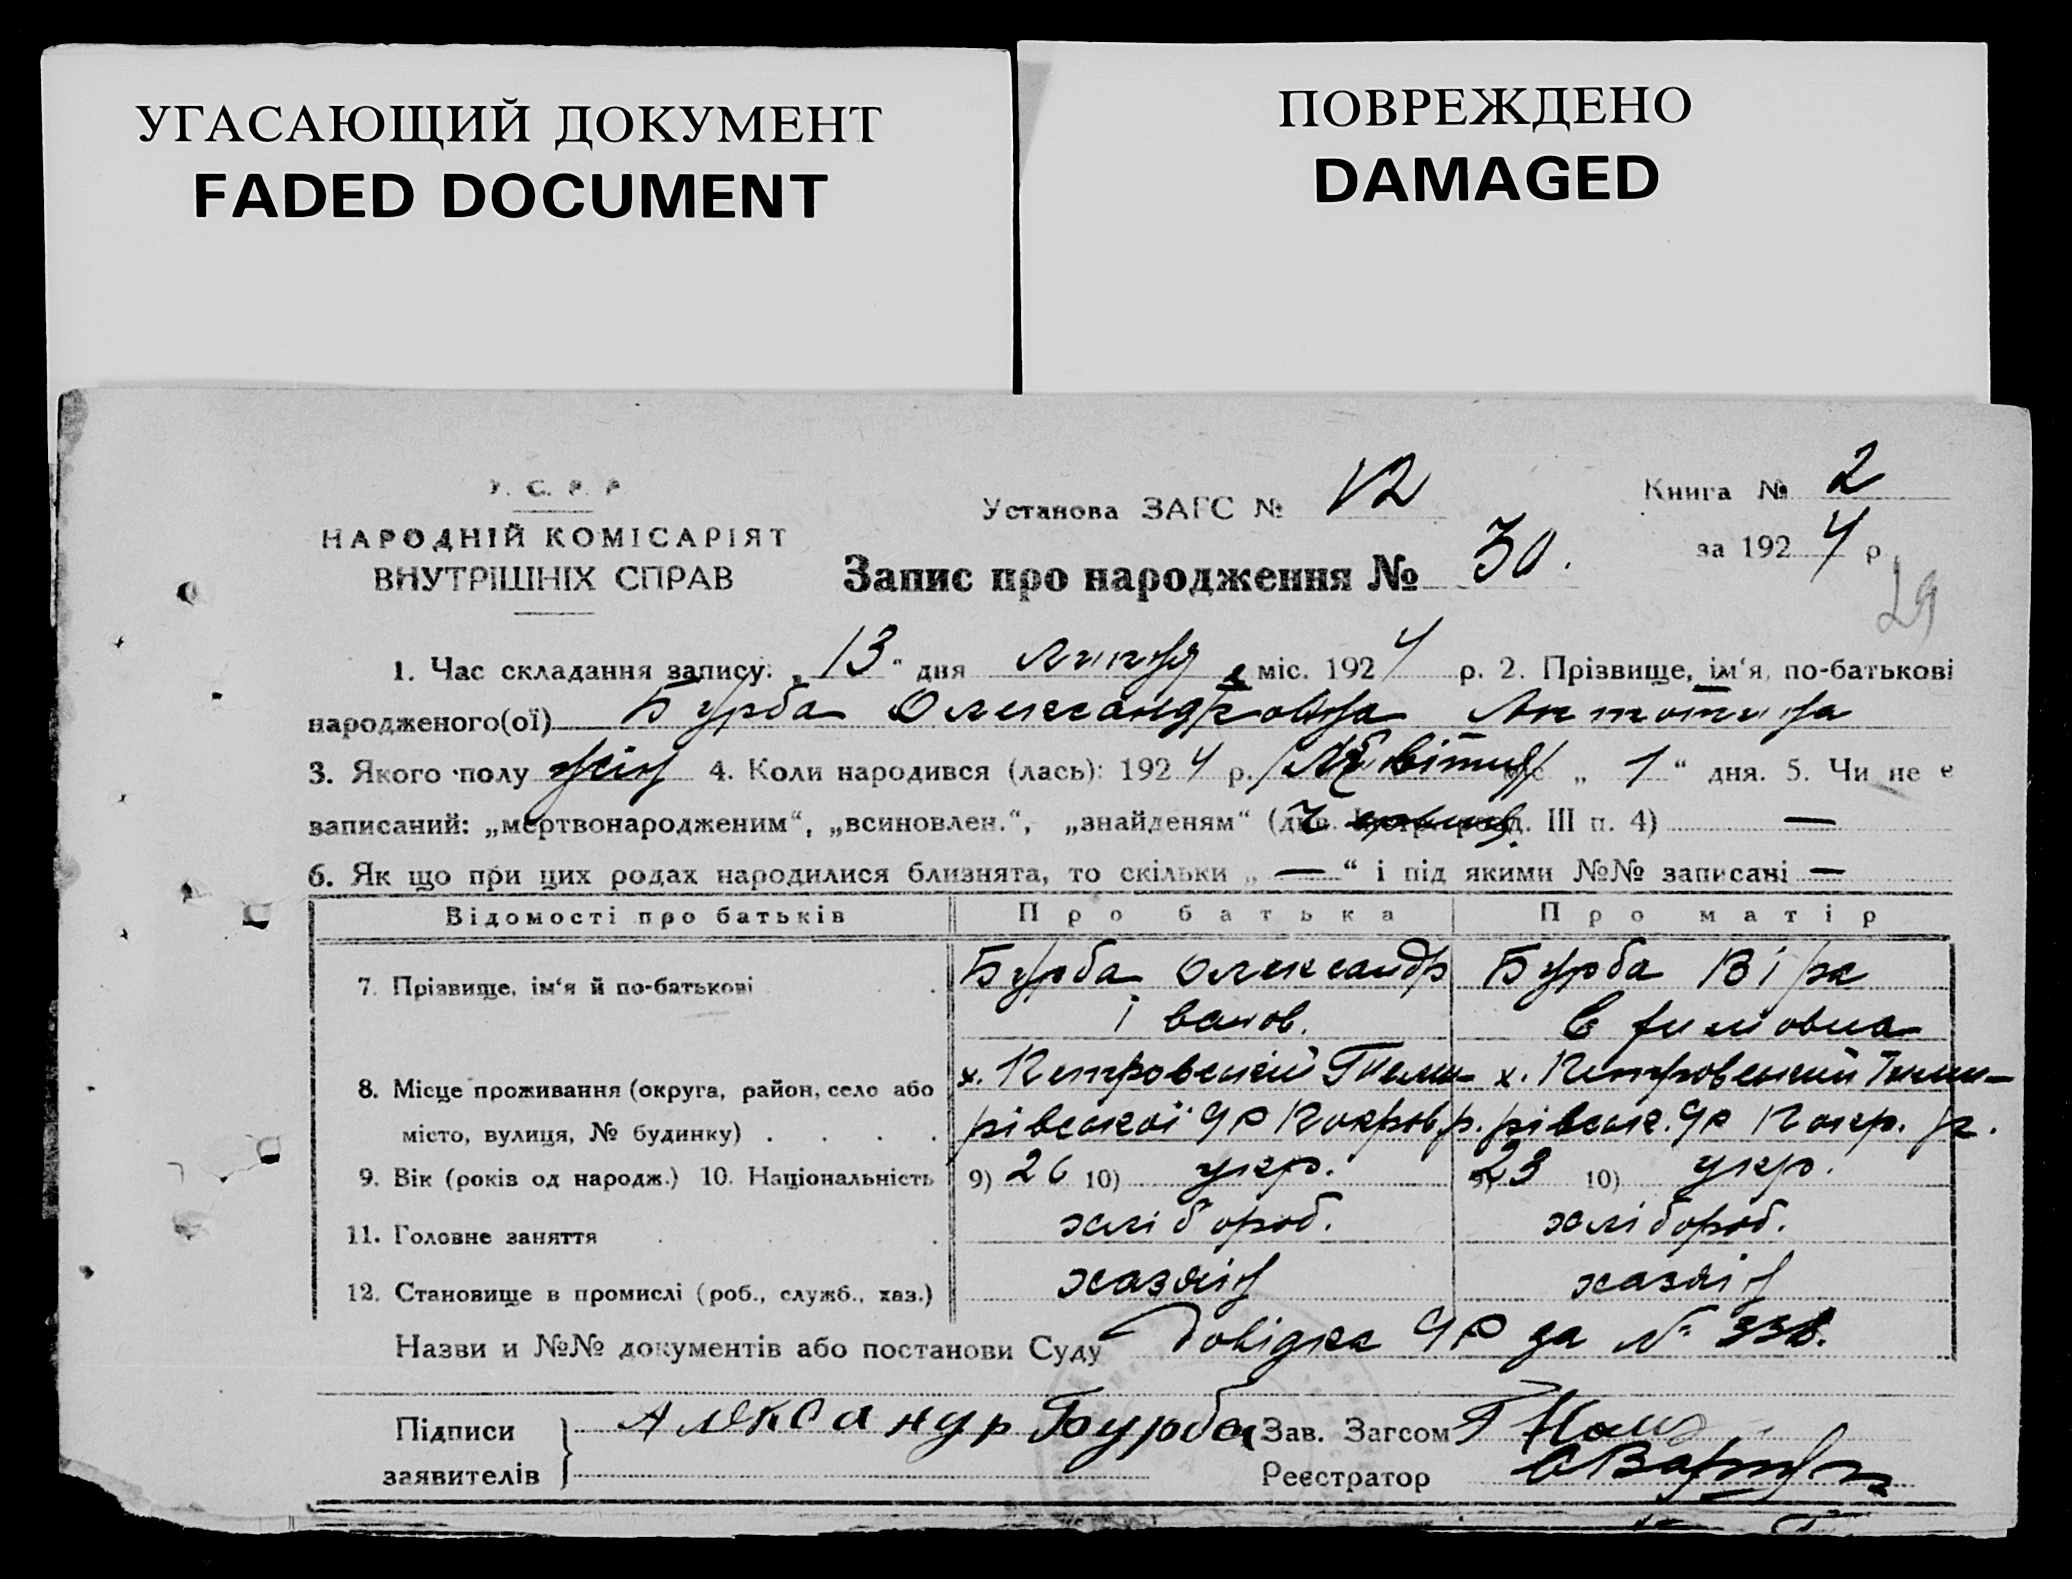 УГАСАЮЩИЙ ДОКУМЕНТ
FADED DOCUMENT
ПОВРЕЖДЕНО
DAMAGED
У. С. Р. Р
НАРОДНІЙ КОМІСАРІЯТ
ВНУТРІШНІХ СПРАВ
Установа ЗАГС № 12
Книга № 2
за 1924 р
Запис про народження № 30.
29
1. Час складання запису: „13“ дня липня міс. 1924 р. 2. Прізвище, ім‘я, по-батькові
народженого(ої) Бурба Олександровна Антоніна
3. Якого полу жін 4. Коли народився (лась): 1924 р. Квітня міс „1“ дня. 5. Чи не є
записаний: „мертвонародженим“, „всиновлен.“, „знайденям“ (див. Інстр. розд. III п. 4) —
6. Як що при цих родах народилися близнята, то скільки „—“ і під якими №№ записані —
Відомості про батьків Про батька Про матір
7. Прізвище, ім‘я й по-батькові Бурба Олександр Бурба Віра
Іванов. Єфимовна
8. Місце проживання (округа, район, село або х. Петровський х. Петровський
місто, вулиця, № будинку) рівської Покров. р. рівськ. Покр. р.
9. Вік (років од народж.) 10. Національність 9) 26 10) укр. 9) 23 10) укр.
11. Головне заняття хлібороб. хлібороб.
12. Становище в промислі (роб., служб., хаз.) хазяін хазяін
Назви и №№ документів або постанови Суду Довідка за №
Підписи Александр Бурба Зав. Загсом
заявителів Реєстратор